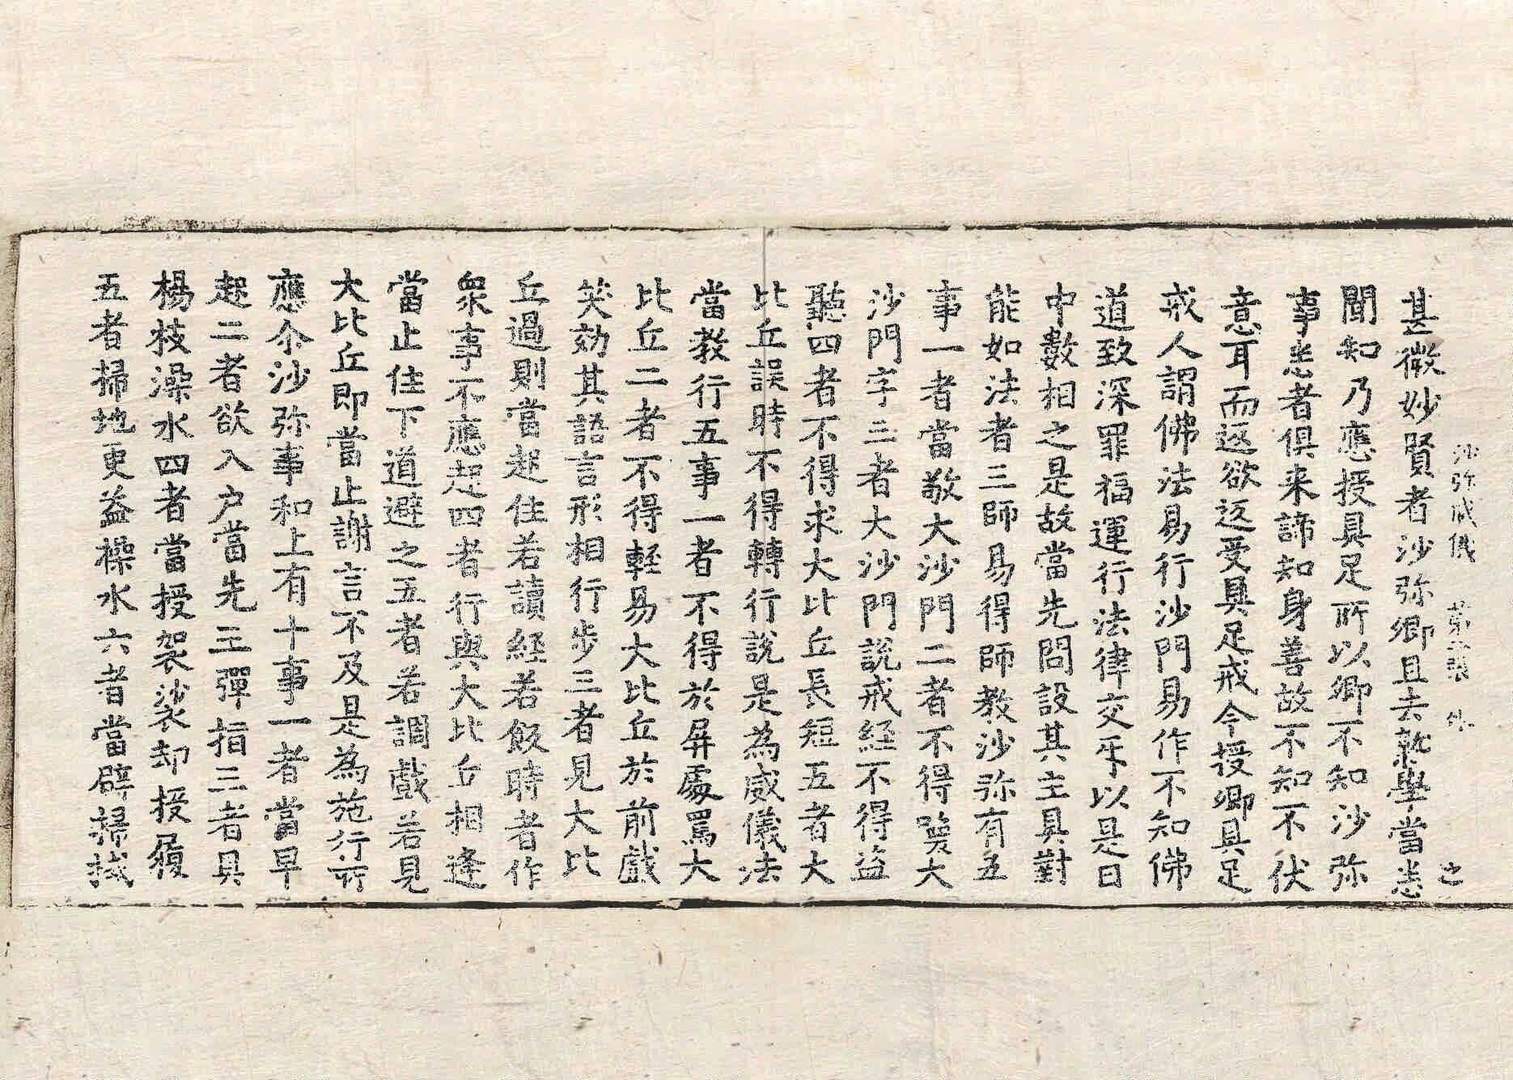 沙弥威儀 第二張 外 之
甚微妙賢者沙弥卿且去就學當悉
聞知乃應授具足所以卿不知沙弥
事悉者俱来諦知身善故不知不伏
意耳而返欲返受具足戒今授卿具足
戒人謂佛法易行沙門易作不知佛
道致深罪福運行法律交牙以是曰
中數相之是故當先問設其主具對
能如法者三師易得師教沙弥有五
事一者當敬大沙門二者不得喚大
沙門字三者大沙門說戒経不得盜
聽四者不得求大比丘長短五者大
比丘誤時不得轉行說是為威儀法
當教行五事一者不得於屏處罵大
比丘二者不得輕易大比丘於前戲
笑効其語言形相行步三者見大比
丘過則當起住若讀経若飯時者作
衆事不應起四者行與大比丘相逢
當止住下道避之五者若調戲若見
大比丘即當止謝言不及是為施行所
應尒沙弥事和上有十事一者當早
起二者欲入户當先三彈指三者具
楊枝澡水四者當授袈裟却授履
五者掃地更益橾水六者當辟掃拭